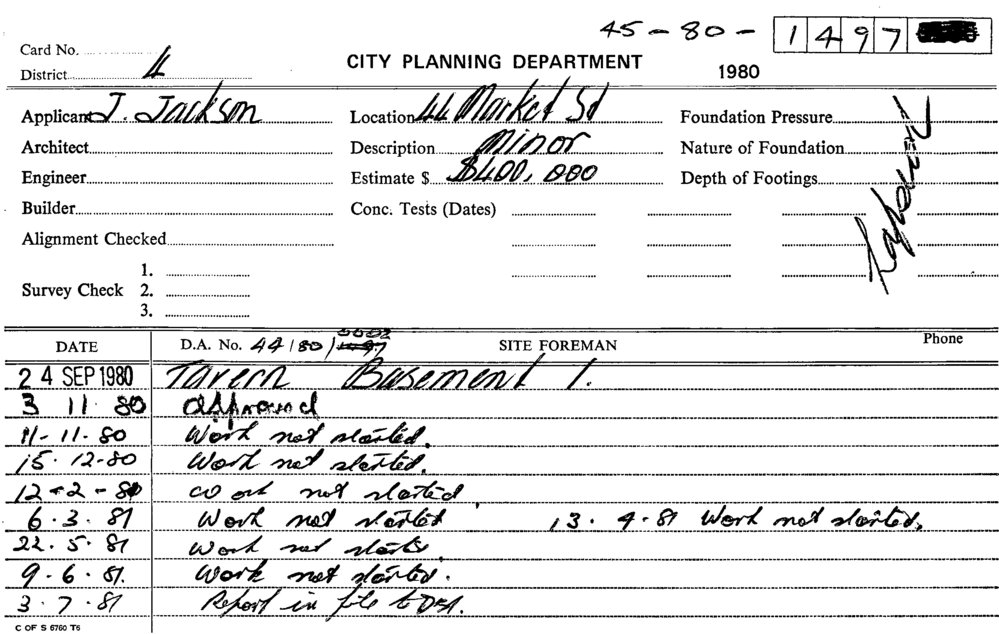 45 - 80 - 1497
Card No.
District 4
CITY PLANNING DEPARTMENT
1980
Applicant J. Jackson
Location 44 Market St
Foundation Pressure
Architect
Description Minor
Nature of Foundation
Engineer
Estimate $ $400,000
Depth of Footings
Builder
Conc. Tests (Dates)
Alignment Checked
Survey Check 1.
2.
3.
DATE D.A. No. 44/80/ 0002 SITE FOREMAN Phone
24 SEP 1980 Tavern Basement 1.
3 11 80 approved
11-11-80 Work not started.
15.12-80 Work not started.
12-2-81 Work not started.
6.3.81 Work not started 13.4.81 Work not started.
22.5.81 Work not started.
9.6.81. Work not started.
3.7.81 Report in file to
C OF S 6760 T6